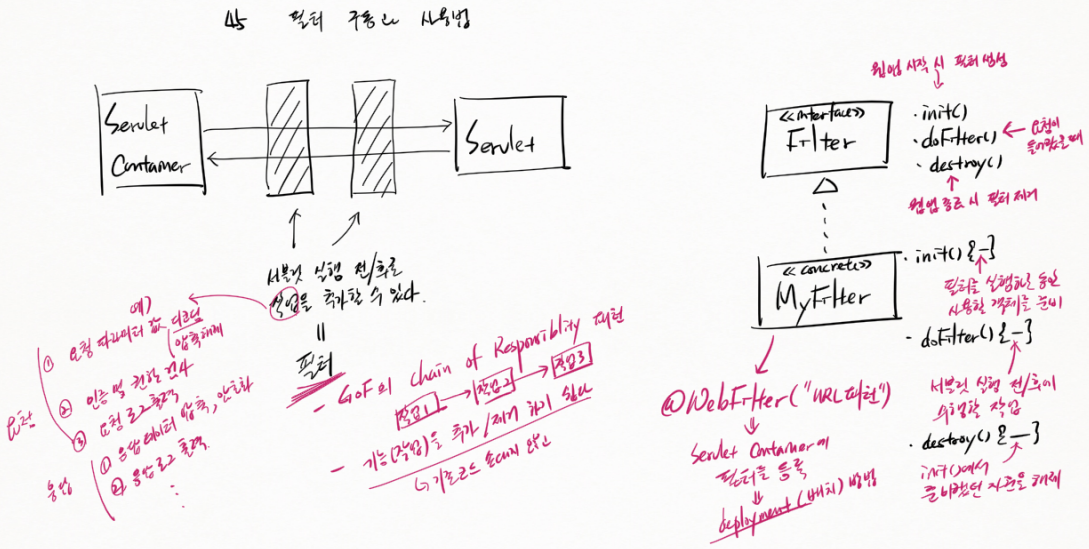 45 필터 구동과 사용법
Servlet
Container
Servlet
서블릿 실행 전/후로
작업을 추가할 수 있다.
=
필터
예)
요청
① 요청 파라미터 값 디코딩
(압축해제
② 인증 및 권한 검사
③ 요청 로그 출력
응답
① 응답 데이터 압축, 암호화
② 응답 로그 출력.
⋮
- GoF의 Chain of Responsiblity 패턴
작업1 → 작업2 → 작업3
- 기능(작업)을 추가/제거 하기 쉽다
↳ 기존코드 손대지 않고
웹앱 시작 시 필터 생성
<<interface>>
Filter
· init()
· doFilter() ← 요청이
들어왔을 때
· destroy()
웹앱 종료 시 필터 제거
<<concrete>>
MyFilter
· init() {~}
필터를 실행하는 동안
사용할 객체를 준비
· doFilter() {~}
서블릿 실행 전/후에
수행할 작업
· destroy() {~}
init()에서
준비했던 자원을 해제
@WebFilter("URL패턴")
Servlet Container에
필터를 등록
deployment(배치) 방법